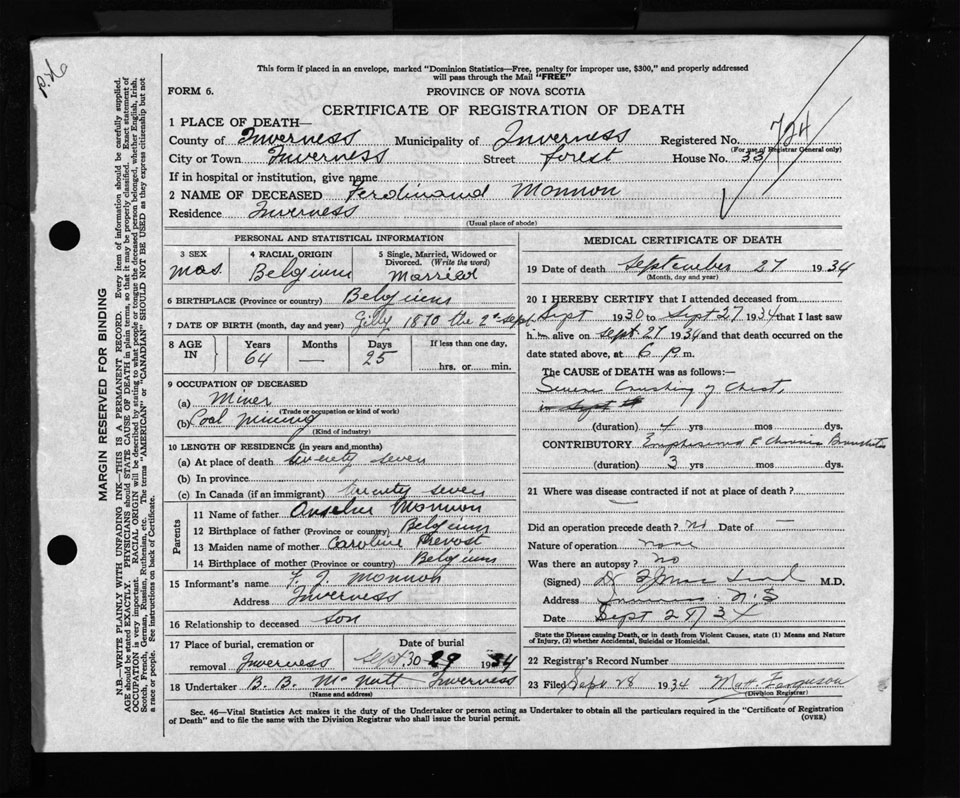 This form if placed in an envelope, marked "Dominion Statistics—Free, penalty for improper use, $300," and properly addressed
will pass through the Mail "FREE"
FORM 6. PROVINCE OF NOVA SCOTIA
CERTIFICATE OF REGISTRATION OF DEATH
1 PLACE OF DEATH—
County of Inverness Municipality of Inverness Registered No. 724
(For use of Registrar General only)
City or Town Inverness Street Forest House No. 33
If in hospital or institution, give name
2 NAME OF DECEASED Ferdinand Monnon
Residence Inverness
(Usual place of abode)
PERSONAL AND STATISTICAL INFORMATION
3 SEX 4 RACIAL ORIGIN 5 Single, Married, Widowed or Divorced. (Write the word)
Mas. Belgium Married
6 BIRTHPLACE (Province or country) Belgium
7 DATE OF BIRTH (month, day and year) Gilly 1870 the 2 sept
8 AGE IN Years Months Days If less than one day,
64 — 25 hrs. or min.
9 OCCUPATION OF DECEASED
(a) Miner
(Trade or occupation or kind of work)
(b) Coal mining
(Kind of industry)
10 LENGTH OF RESIDENCE (in years and months)
(a) At place of death twenty seven
(b) In province
(c) In Canada (if an immigrant) twenty seven
Parents
11 Name of father Anselme Monnon
12 Birthplace of father (Province or country) Belgium
13 Maiden name of mother Caroline Prevost
14 Birthplace of mother (Province or country) Belgium
15 Informant's name F. J. Monnon
Address Inverness
16 Relationship to deceased son
17 Place of burial, cremation or Date of burial
removal Inverness Sept. 30 29 1934
18 Undertaker B. B. McNutt Inverness
(Name and address)
MEDICAL CERTIFICATE OF DEATH
19 Date of death September 27 1934
(Month, day and year)
20 I HEREBY CERTIFY that I attended deceased from
Sept 1930 to Sept 27 1934 that I last saw
h im alive on Sept 27 1934 and that death occurred on the
date stated above, at 6 P m.
The CAUSE of DEATH was as follows:—
Severe Crushing of Chest,
in Sept
(duration) 4 yrs mos dys.
CONTRIBUTORY Emphysema & Chronic Bronchitis
(duration) 3 yrs mos dys.
21 Where was disease contracted if not at place of death? —
Did an operation precede death? No Date of —
Nature of operation none
Was there an autopsy? No
(Signed) Dr M.D.
Address Inverness N.S
Date Sept 27/34
State the Disease causing Death, or in death from Violent Causes, state (1) Means and Nature
of Injury, (2) whether Accidental, Suicidal or Homicidal.
22 Registrar's Record Number
23 Filed Sept 28 1934 Ferguson
(Division Registrar)
Sec. 46—Vital Statistics Act makes it the duty of the Undertaker or person acting as Undertaker to obtain all the particulars required in the "Certificate of Registration
of Death" and to file the same with the Division Registrar who shall issue the burial permit. (OVER)
MARGIN RESERVED FOR BINDING
N.B.—WRITE PLAINLY WITH UNFADING INK—THIS IS A PERMANENT RECORD. Every item of information should be carefully supplied.
AGE should be stated EXACTLY. PHYSICIANS should STATE CAUSE OF DEATH in plain terms, so that it may be properly classified. Exact statement of
OCCUPATION is very important. RACIAL ORIGIN will be described by stating to what people or tongue the deceased person belonged, whether English, Irish,
Scotch, French, German, Russian, Ruthenian, etc. The terms "AMERICAN" or "CANADIAN" SHOULD NOT BE USED as they express citizenship but not
a race or people. See instructions on back of Certificate.